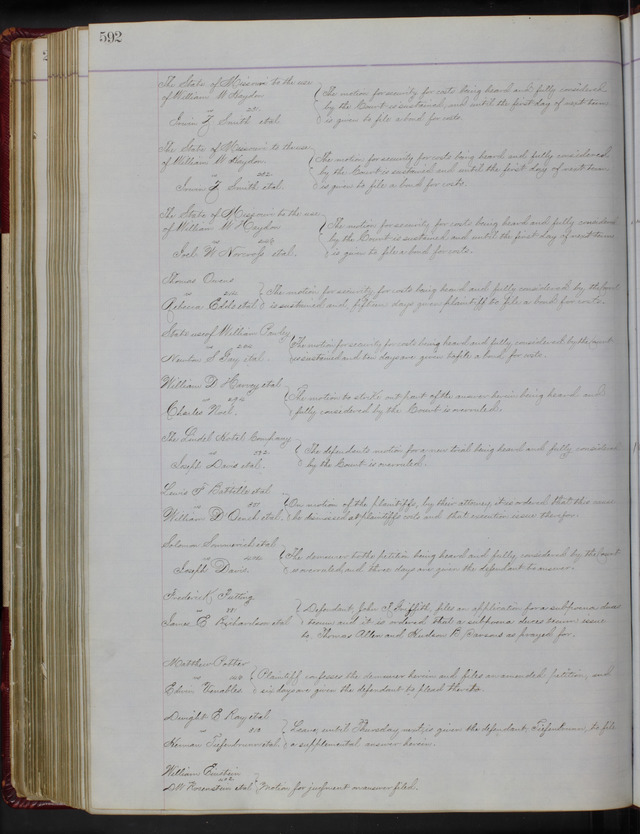 592
The State of Missouri to the use
of William W Heydon
vs
Irwin Z Smith etal.
The motion for security for costs being heard and fully considered
by the Court is sustained, and until the first day of next term
is given to file a bond for costs.
The State of Missouri to the use
of William W Heydon
vs
Irwin Z Smith etal.
The motion for security for costs being heard and fully considered
by the Court is sustained and until the first day of next term
is given to file a bond for costs.
The State of Missouri to the use
of William W Heydon
vs
Joel W Norcross etal.
The motion for security for costs being heard and fully considered
by the Court is sustained and until the first day of next term
is given to file a bond for costs.
Thomas Owens
vs
Rebecca etal
The motion for security for costs being heard and fully considered by the Court
is sustained and fifteen days given plaintiff to file a bond for costs.
State use of William
vs
Newton S Gay etal.
The motion for security for costs being heard and fully considered by the Court
is sustained and ten days are given to file a bond for costs.
William D Henry etal
vs
Charles Noel.
The motion to strike out part of the answer herein being heard and
fully considered by the Court is overruled.
The Lindel Hotel Company
vs
Joseph Davis etal.
The defendants motion for a new trial being heard and fully considered
by the Court is overruled.
Lewis F Battelle etal
vs
William D etal.
On motion of the plaintiffs, by their attorney, it is ordered that this cause
be dismissed at plaintiffs costs and that execution issue therefor.
Solomon etal
vs
Joseph Davis.
The demurrer to the petition being heard and fully considered by the Court
is overruled and three days are given the defendant to answer.
Frederick
vs
James E Richardson etal
Defendant, John S. Griffith, files an application for a subpoena duces
tecum and it is ordered that a subpoena duces tecum issue
to Thomas Allen and B. Parsons as prayed for.
Matthew Potter
vs
Edwin Venables
Plaintiff confesses the demurrer herein and files an amended petition, and
six days are given the defendant to plead thereto.
Dwight E Ray etal
vs
Herman Tiefenbrunn etal
Leave, until Thursday next, is given the defendant, Tiefenbrunn, to file
a supplemental answer herein.
William Einstein
vs
DW Rosenstein etal
Motion for judgment answer filed.